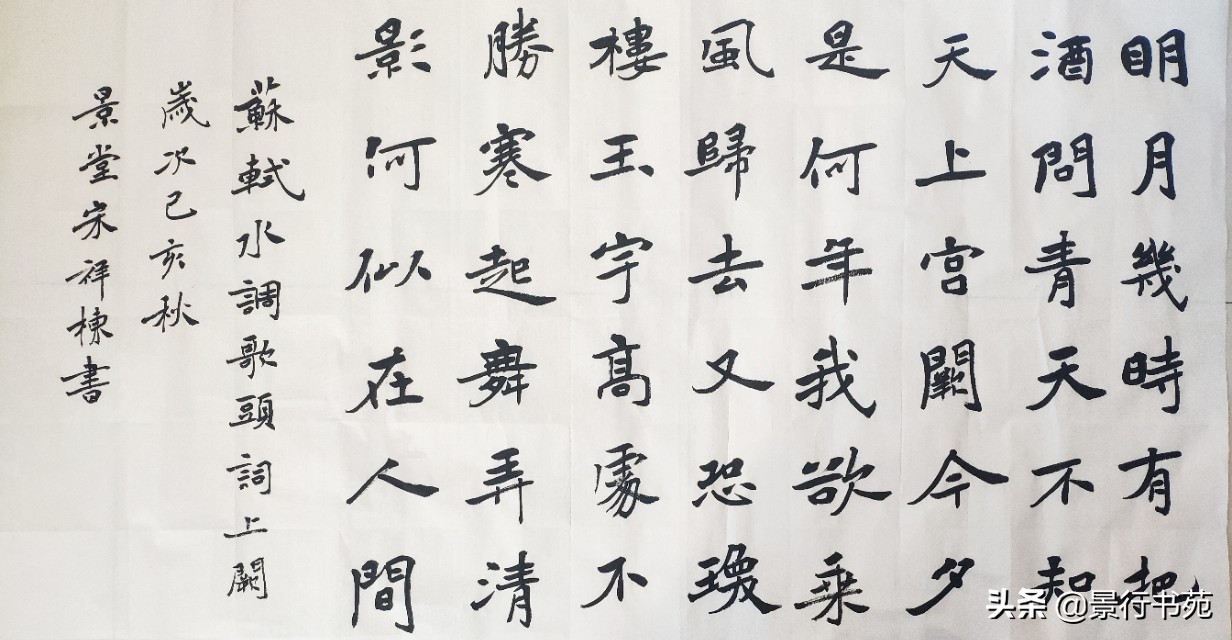 明月幾時有把
酒問青天不知
天上宫闕今夕
是何年我欲乘
風歸去又恐瓊
樓玉宇高處不
勝寒起舞弄清
影何似在人間
蘇軾水調歌頭詞上闋
歲次己亥秋
景堂宋祥棟書
头条 @景行书苑